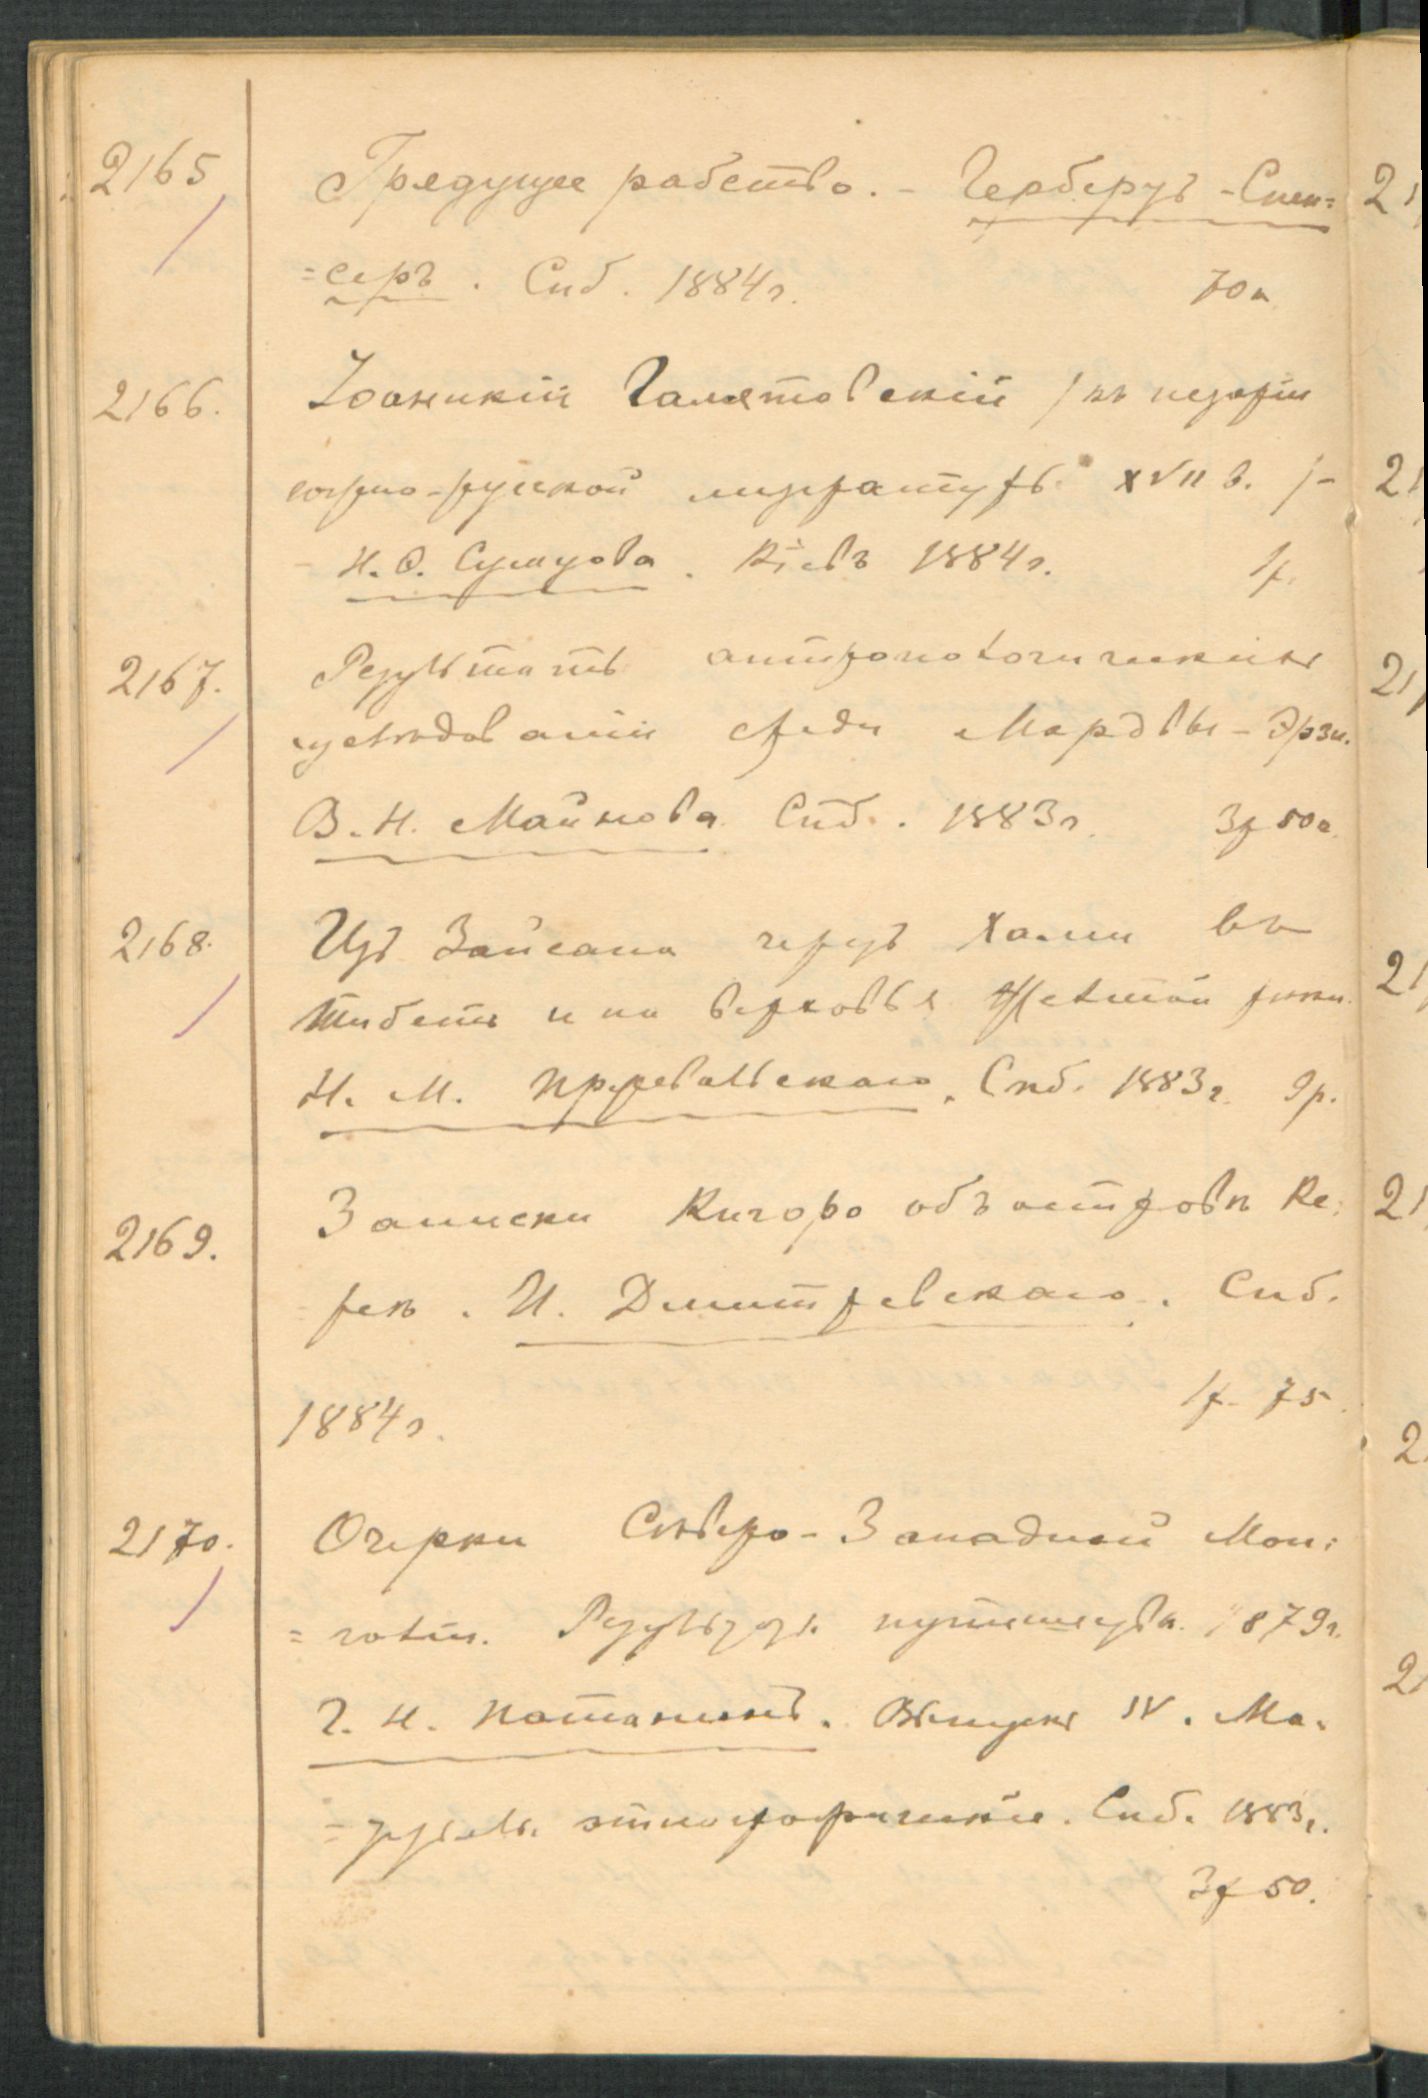 2165 Грядущее рабство. - Гербертъ - Спен=
=серъ. Спб. 1884г. 70к
2166. Іоаникій Галятовскій (къ исторіи
южно-русской литературѣ XVII в. ) -
- Н. Ѳ. Сумцова. Кіевъ 1884г. 1р.
2167. Результатъ антропологическихъ
изслѣдованій среди Мордвы - Эрзи.
В. Н. Майнова. Спб. 1883г. 3р 50к.
2168. Изъ Зайсана черезъ Хами въ
Тибетъ и на верховья Желтой рѣки.
Н. М. Пржевальскаго. Спб. 1883г. 9р.
2169. Записки Кигоро объ островѣ Ке=
рек. И. Дмитревскаго. Спб.
1884г. 1р. 75
2170. Очерки Сѣверо-Западной Мон=
=голіи. Результ. путешеств. 1879г.
Г. Н. Потанинъ. Выпускъ IV. Ма=
=теріалы этнографическіе. Спб. 1883г.
3р 50.